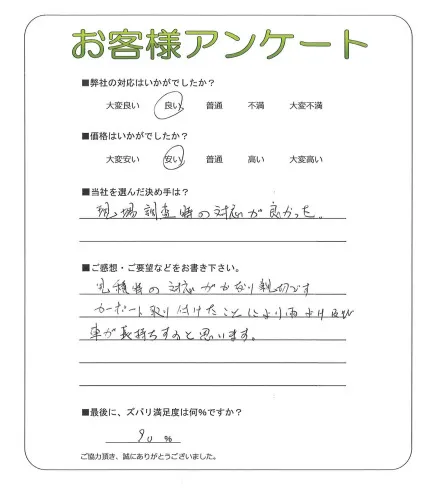 お客様アンケート
■弊社の対応はいかがでしたか?
大変良い 良い 普通 不満 大変不満
■価格はいかがでしたか?
大変安い 安い 普通 高い 大変高い
■当社を選んだ決め手は?
現場調査時の対応が良かった。
■ご感想・ご要望などをお書き下さい。
見積時の対応がかなり親切です
カーポート取り付けたことにより雨よけ及び
車が長持ちすると思います。
■最後に、ズバリ満足度は何%ですか?
90 %
ご協力頂き、誠にありがとうございました。